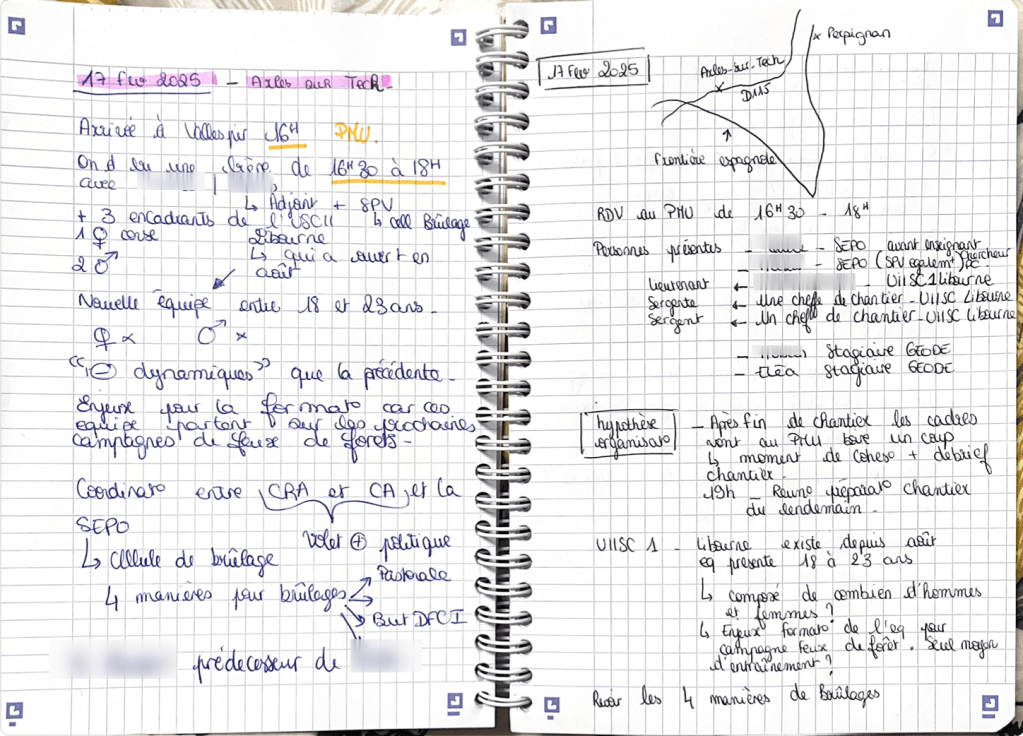 17 fev 2025 - Arles sur Tech -
Arrivée à Vallespir 16H PMU.
On a bu une bière de 16H30 à 18H
avec
↳ Adjoint + SPV
+ 3 encadrants de l'USCII ↳ cell Brûlage
1 ♀ corse Libourne
2 ♂ ↳ qui a ouvert en
août
Nouvelle équipe entre 18 et 23 ans -
♀ x ♂ x
"⊖ dynamiques" que la précédente -
Enjeux pour la formato car ces
equipe partent sur les prochaines
campagnes de feux de forêts -
Coordinato entre CRA et CA, et la
SEPO
Volet ⊕ politique
↳ Cellule de brûlage
Pastorale
4 manières pour brûlages
But DFCI
prédecesseur de
17 Fev 2025
x Perpignan
Arles-sur-Tech
x
D115
Frontière espagnole
RDV au PMU de 16H30 - 18H
Personnes présentes - - SEPO avant enseignant
chercheur
- - SEPO (SPV egalemt) DC
Lieutenant ← - UIISC1 Libourne
Sergente ← Une cheffe de chantier - UIISC Libourne
Sergent ← Un chef de chantier - UIISC Libourne
- Stagiaire GEODE
- Eléa Stagiaire GEODE
hypothèse
organisato
- Après fin de chantier les cadres
vont au PMU boire un coup
↳ moment de coheso + débrief
chantier.
19h - Reuno préparato chantier
du lendemain.
UIISC 1 - Libourne existe depuis août
eq presente 18 à 23 ans
↳ composé de combien d'hommes
et femmes ?
↳ Enjeux formato de l'eq pour
campagne feux de forêt. Seul moyen
d'entraînement ?
Revoir les 4 manières de Brûlages